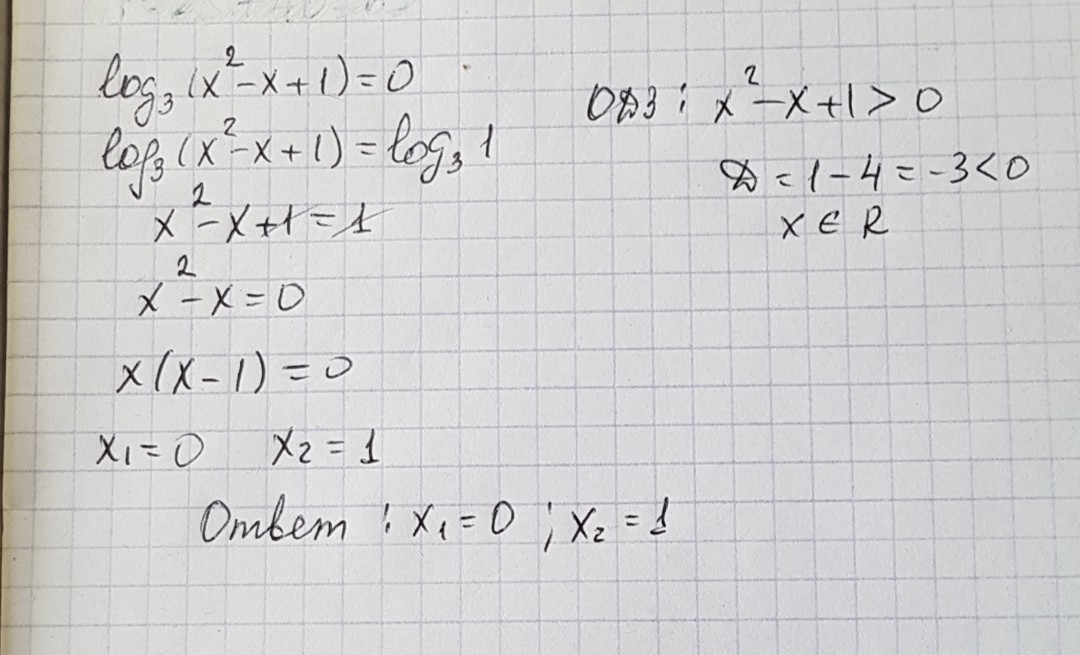 log₃(x²-x+1)=0
log₃(x²-x+1)=log₃1
x²-x+1=1
x²-x=0
x(x-1)=0
x₁=0 x₂=1
Ответ: x₁=0; x₂=1
ОДЗ: x²-x+1>0
D=1-4=-3<0
x∈R